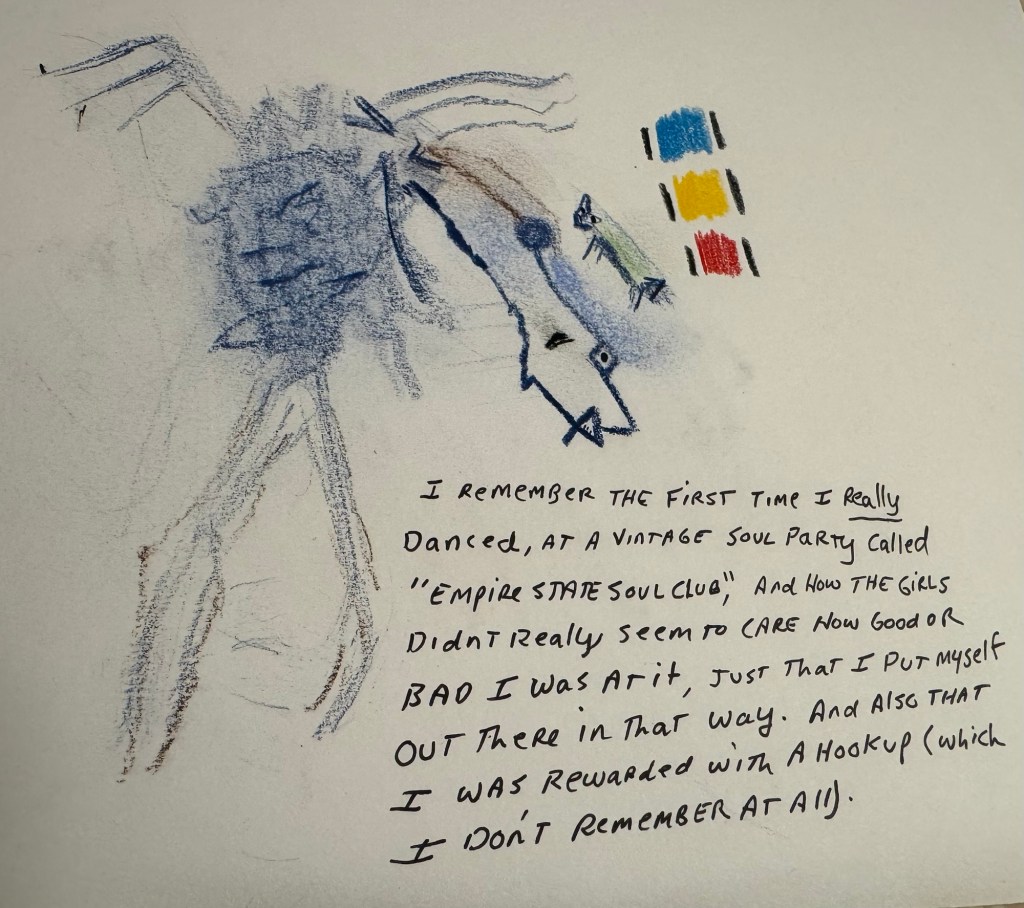 I REMEMBER THE FIRST TIME I Really
Danced, AT A VINTAGE SOUL PARTY Called
"EMPIRE STATE SOUL CLUB," And How THE GIRLS
DIDNT Really Seem TO CARE HOW GOOD OR
BAD I WAS AT it, JUST THAT I PUT MYSELF
OUT THERE in THAT WAY. And Also THAT
I WAS REWARDED WITH A HOOKUP (which
I DON'T REMEMBER AT All).